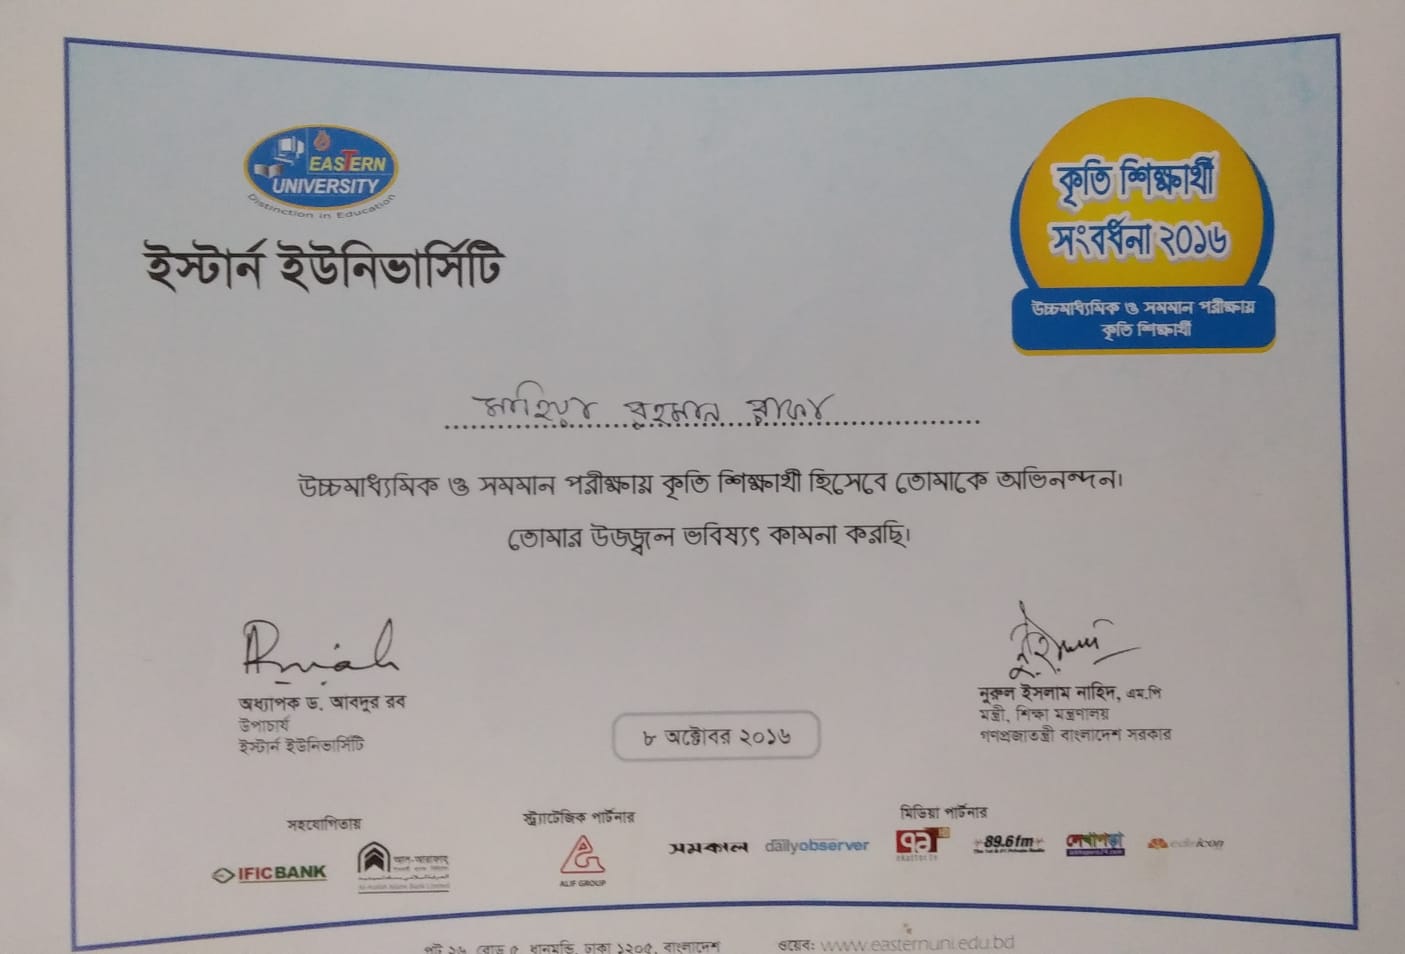 EASTERN
UNIVERSITY
Distinction in Education
ইস্টার্ন ইউনিভার্সিটি
কৃতি শিক্ষার্থী
সংবর্ধনা ২০১৬
উচ্চমাধ্যমিক ও সমমান পরীক্ষায়
কৃতি শিক্ষার্থী
রহমান
উচ্চমাধ্যমিক ও সমমান পরীক্ষায় কৃতি শিক্ষার্থী হিসেবে তোমাকে অভিনন্দন।
তোমার উজ্জ্বল ভবিষ্যৎ কামনা করছি।
অধ্যাপক ড. আবদুর রব
উপাচার্য
ইস্টার্ন ইউনিভার্সিটি
৮ অক্টোবর ২০১৬
নুরুল ইসলাম নাহিদ, এম.পি
মন্ত্রী, শিক্ষা মন্ত্রণালয়
গণপ্রজাতন্ত্রী বাংলাদেশ সরকার
সহযোগিতায়
IFIC BANK
আল-আরাফাহ্
Al-Arafah Islami Bank Limited
স্ট্র্যাটেজিক পার্টনার
ALIF GROUP
মিডিয়া পার্টনার
সমকাল
dailyobserver
ekattor.tv
89.6 fm
লেখাপড়া
ধানমন্ডি, ঢাকা ১২০৫, বাংলাদেশ
ওয়েব: www.easternuni.edu.bd